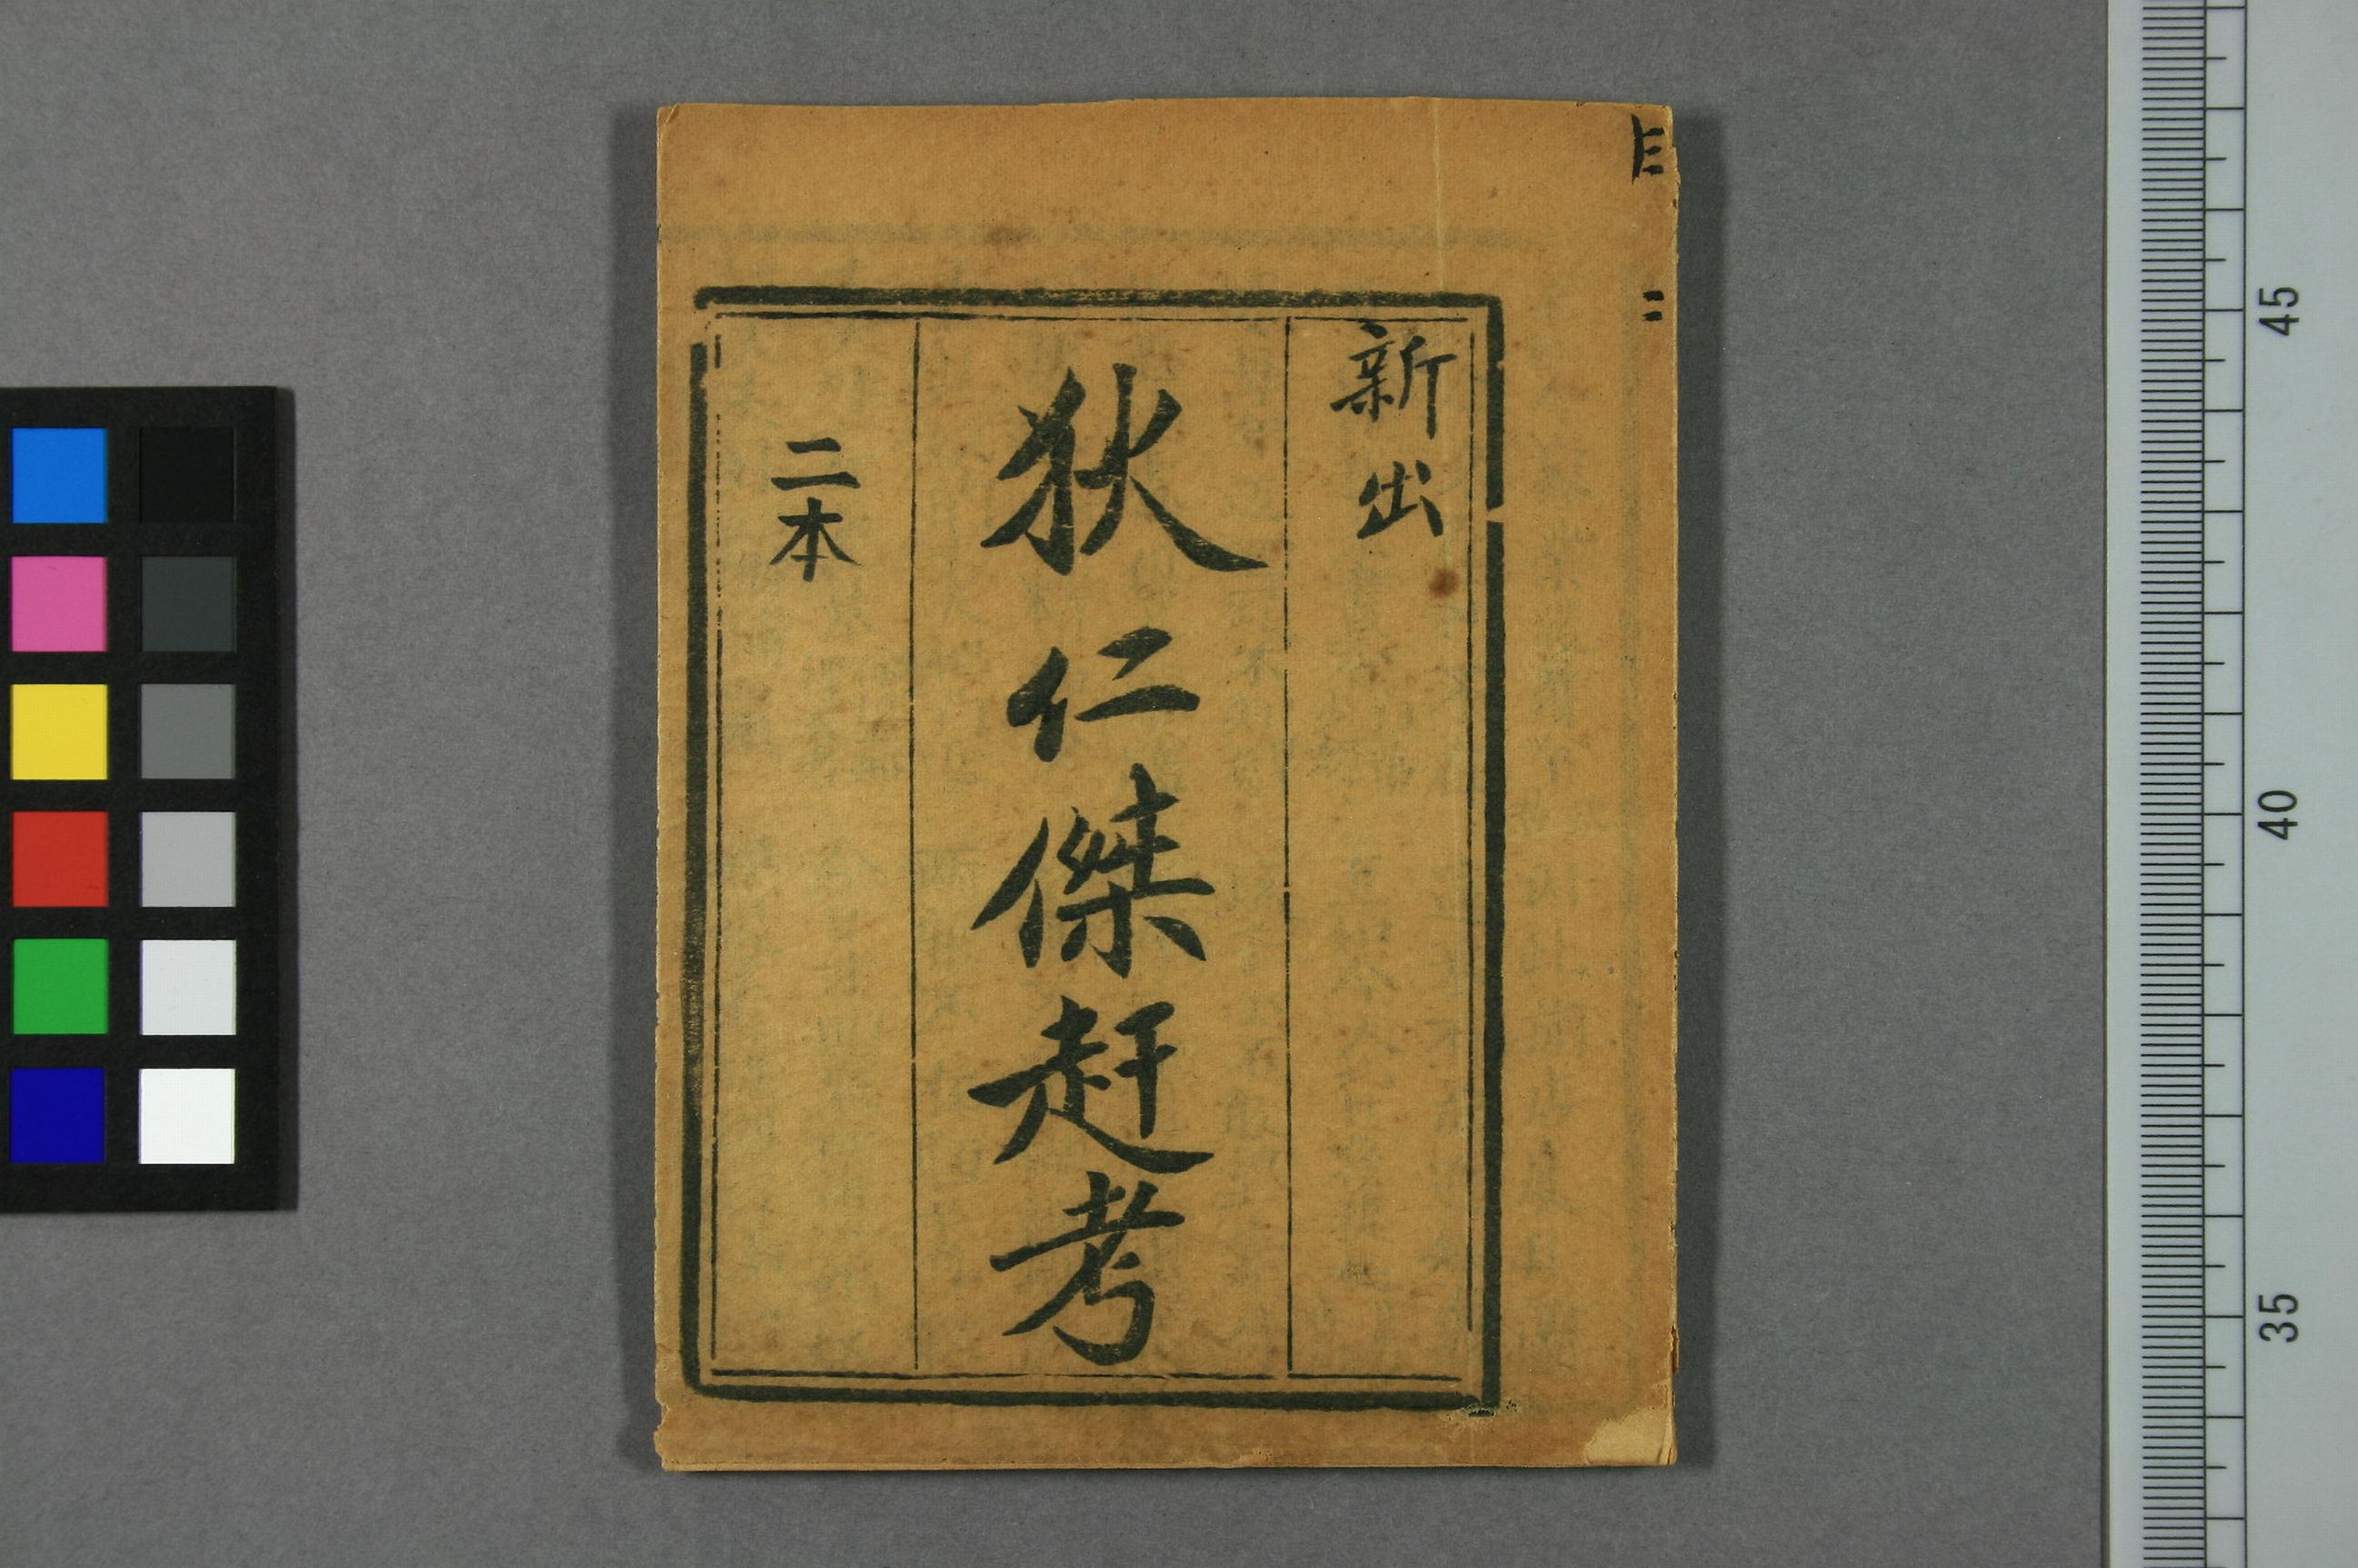 新出
狄仁傑赶考
二本
45
40
35